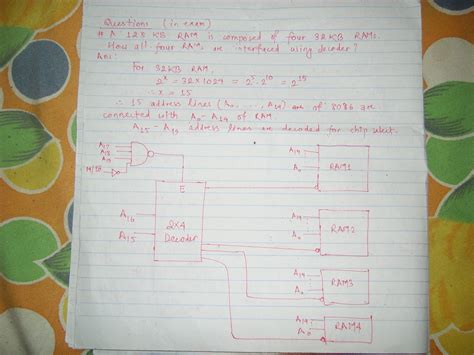 Questions (in exam)
# A 128 KB RAM is composed of four 32KB RAMs.
How all four RAMs are interfaced using decoder?
Ans:
For 32KB RAM,
2^x = 32×1024 = 2^5 · 2^10 = 2^15
∴ x = 15
∴ 15 address lines (A0, ...., A14) are of 8086 are
connected with A0 - A14 of RAM
A15 - A19 address lines are decoded for chip select.
A17
A18
A19
M/IO
E
A16
A15
2X4
Decoder
A14
A0
RAM1
A14
A0
RAM2
A14
A0
RAM3
A14
A0
RAM4